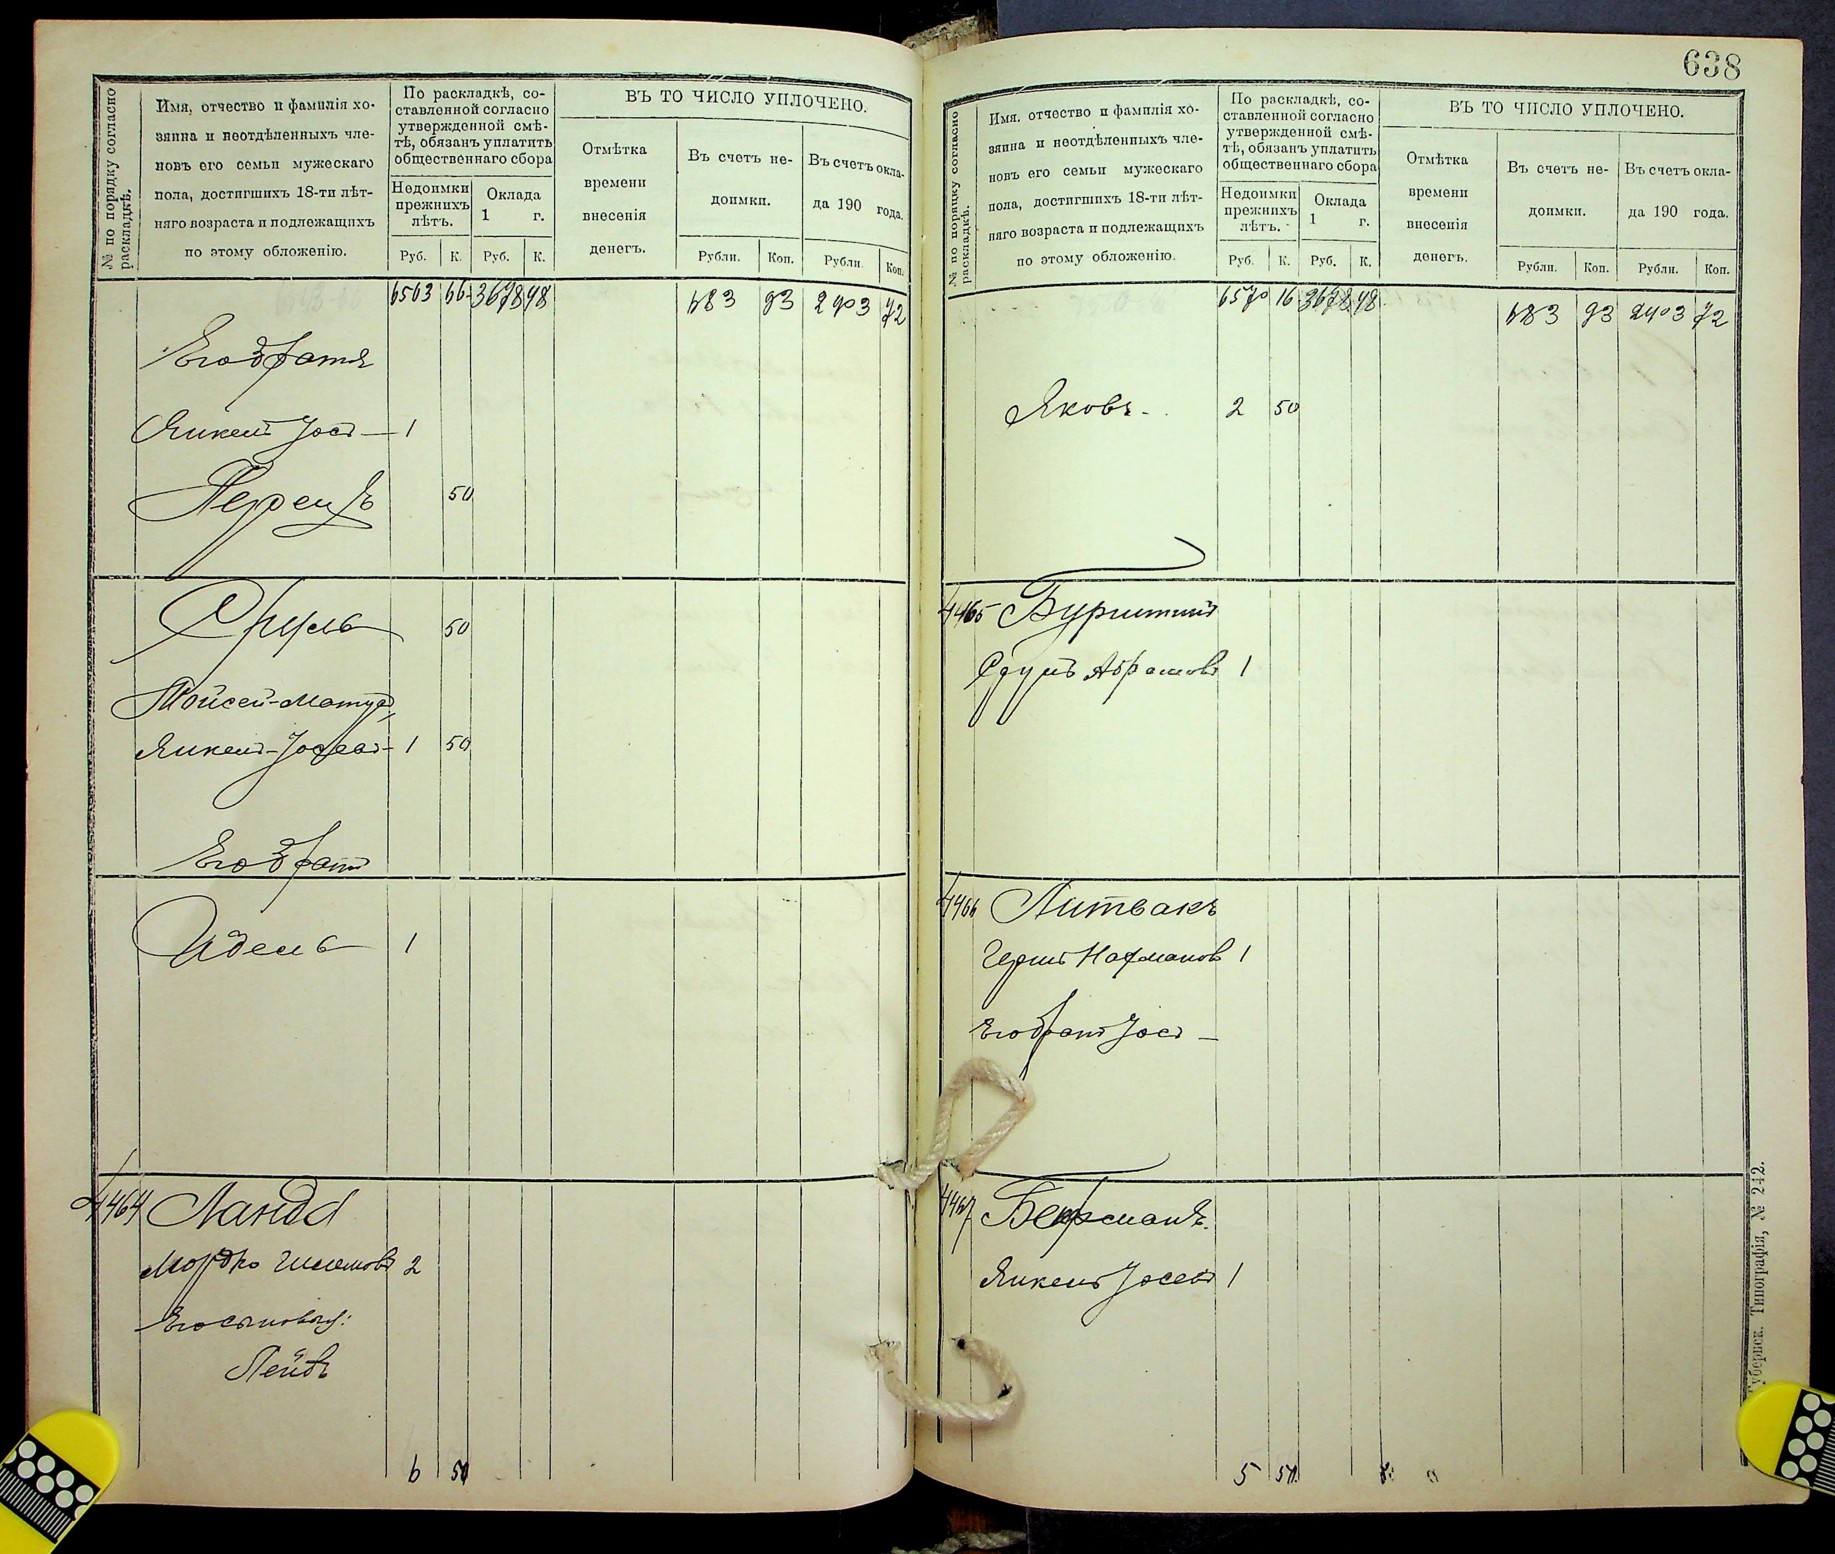 № по порядку согласно раскладкѣ.
Имя, отчество и фамилія хо-
зяина и неотдѣленныхъ чле-
новъ его семьи мужескаго
пола, достигшихъ 18-ти лѣт-
няго возраста и подлежащихъ
по этому обложенію.
По раскладкѣ, со-
ставленной согласно
утвержденной смѣ-
тѣ, обязанъ уплатить
общественнаго сбора
Недоимки
прежнихъ
лѣтъ.
Оклада
1 г.
Руб. К. Руб. К.
ВЪ ТО ЧИСЛО УПЛОЧЕНО.
Отмѣтка
времени
внесенія
денегъ.
Въ счетъ не-
доимки.
Въ счетъ окла-
да 190 года.
Рубли. Коп. Рубли. Коп.
6563 66 3678 48 683 93 2403 72
Его братья
Янкель Јось — 1
Перецъ 50
Сруль 50
Мойсей-Матус
Янкель-Јосевъ - 1 50
Его братъ
Идель 1
4464 Ландa
Мордко Шлемовъ 2
Его сыновья:
Лейбъ
6 50
638
№ по порядку согласно раскладкѣ.
Имя, отчество и фамилія хо-
зяина и неотдѣленныхъ чле-
новъ его семьи мужескаго
пола, достигшихъ 18-ти лѣт-
няго возраста и подлежащихъ
по этому обложенію.
По раскладкѣ, со-
ставленной согласно
утвержденной смѣ-
тѣ, обязанъ уплатить
общественнаго сбора
Недоимки
прежнихъ
лѣтъ.
Оклада
1 г.
Руб. К. Руб. К.
ВЪ ТО ЧИСЛО УПЛОЧЕНО.
Отмѣтка
времени
внесенія
денегъ.
Въ счетъ не-
доимки.
Въ счетъ окла-
да 190 года.
Рубли. Коп. Рубли. Коп.
6570 16 3678 48 683 93 2403 72
Яковъ - 2 50
4465
Сруль Абрамовъ 1
4466 Литвакъ
Гершъ Нахмановъ 1
Его братъ Јось —
4467 Берманъ.
Янкель Јосевъ 1
5 50
Губернск. Типографія, № 242.